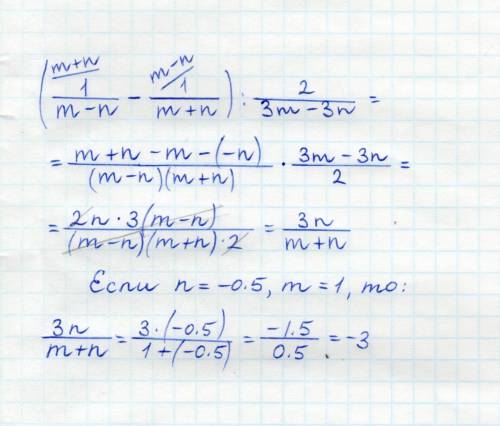 (m+n/ 1/(m-n) - m-n/ 1/(m+n)) : 2/(3m-3n) =
= (m+n-m-(-n))/((m-n)(m+n)) · (3m-3n)/2 =
= (2n·3(m-n))/((m-n)(m+n)·2) = 3n/(m+n)
Если n=-0.5, m=1, то:
3n/(m+n) = (3·(-0.5))/(1+(-0.5)) = -1.5/0.5 = -3